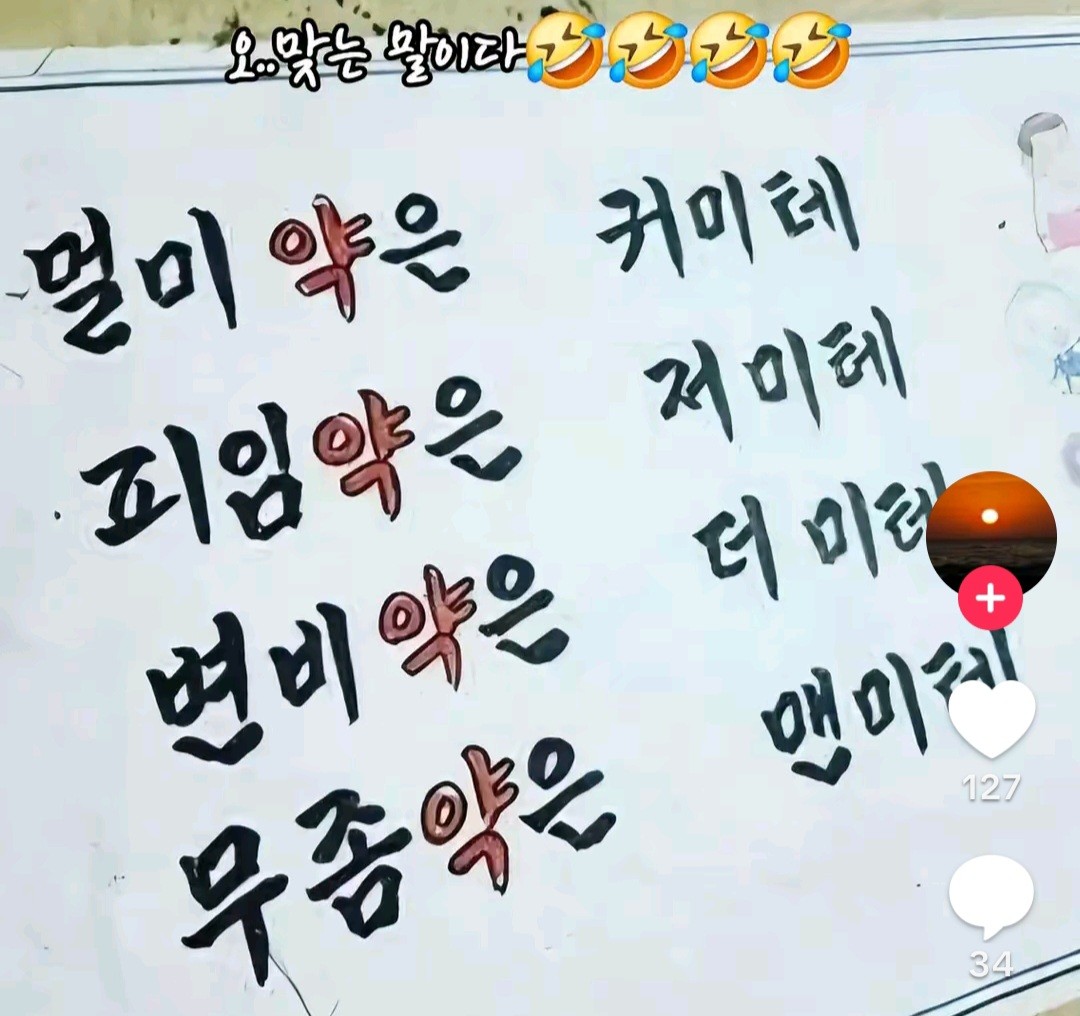 오..맞는 말이다🤣🤣🤣🤣
멀미 약은 귀미테
피임약은 저미테
변비약은 더미테
무좀약은 맨미테
127
34